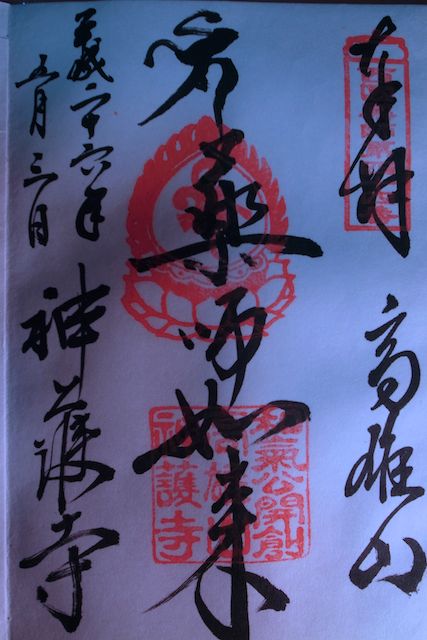 奉拝
高雄山
薬師如来
平成二十六年
五月三日
神護寺
和氣公開創
高雄山
神護寺